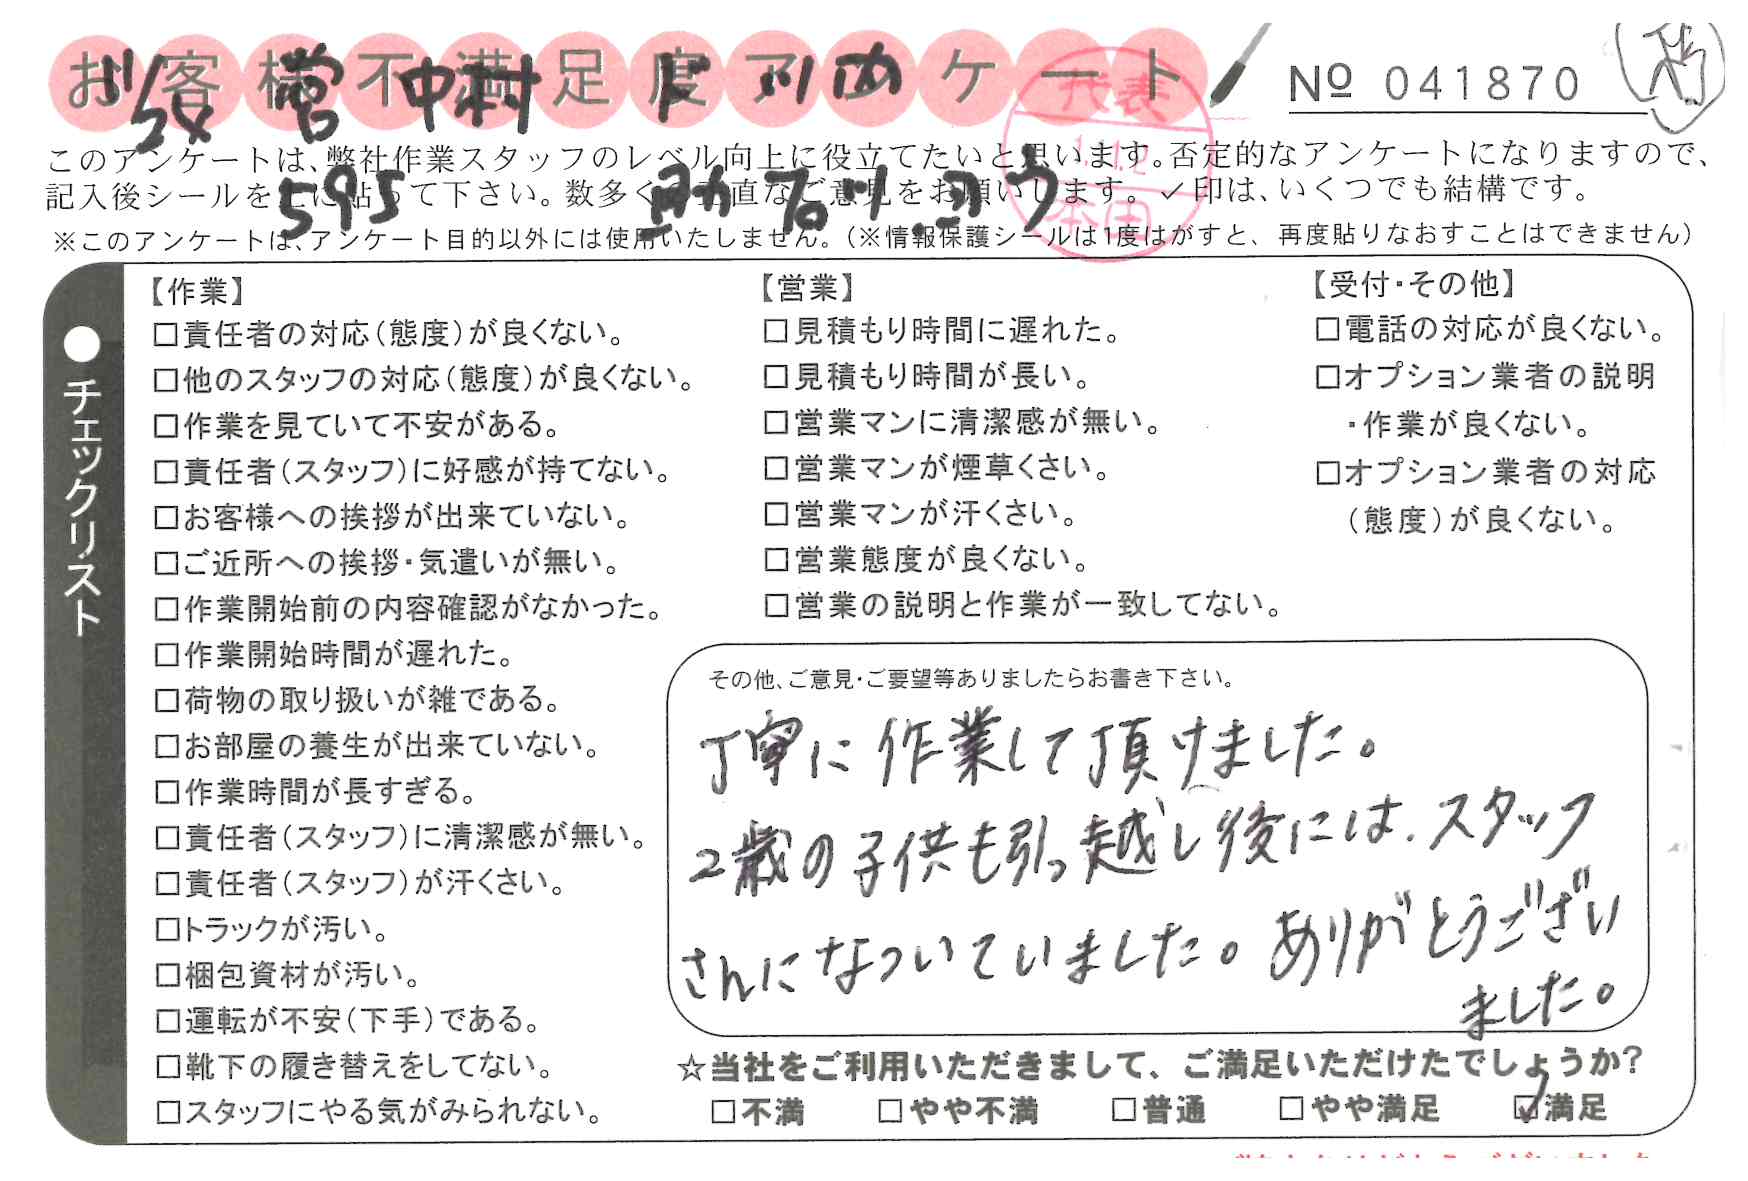 お客様不満足度アンケート
No 041870
営 中村
595
代表
本田
このアンケートは、弊社作業スタッフのレベル向上に役立てたいと思います。否定的なアンケートになりますので、
記入後シールを上に貼って下さい。数多くの正直なご意見をお願いします。✓印は、いくつでも結構です。
※このアンケートは、アンケート目的以外には使用いたしません。(※情報保護シールは1度はがすと、再度貼りなおすことはできません)
●チェックリスト
【作業】
□責任者の対応(態度)が良くない。
□他のスタッフの対応(態度)が良くない。
□作業を見ていて不安がある。
□責任者(スタッフ)に好感が持てない。
□お客様への挨拶が出来ていない。
□ご近所への挨拶・気遣いが無い。
□作業開始前の内容確認がなかった。
□作業開始時間が遅れた。
□荷物の取り扱いが雑である。
□お部屋の養生が出来ていない。
□作業時間が長すぎる。
□責任者(スタッフ)に清潔感が無い。
□責任者(スタッフ)が汗くさい。
□トラックが汚い。
□梱包資材が汚い。
□運転が不安(下手)である。
□靴下の履き替えをしてない。
□スタッフにやる気がみられない。
【営業】
□見積もり時間に遅れた。
□見積もり時間が長い。
□営業マンに清潔感が無い。
□営業マンが煙草くさい。
□営業マンが汗くさい。
□営業態度が良くない。
□営業の説明と作業が一致してない。
【受付・その他】
□電話の対応が良くない。
□オプション業者の説明
・作業が良くない。
□オプション業者の対応
(態度)が良くない。
その他、ご意見・ご要望等ありましたらお書き下さい。
丁寧に作業して頂けました。
2歳の子供も引っ越し後には、スタッフ
さんになついていました。ありがとうござい
ました。
☆当社をご利用いただきまして、ご満足いただけたでしょうか?
□不満 □やや不満 □普通 □やや満足 ☑満足